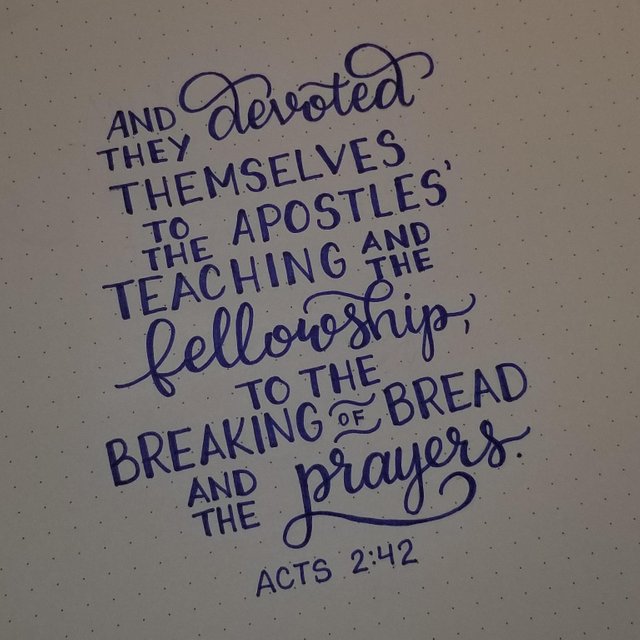 AND THEY devoted
THEMSELVES
TO THE APOSTLES'
TEACHING AND THE
fellowship,
TO THE
BREAKING OF BREAD
AND THE prayers.
ACTS 2:42